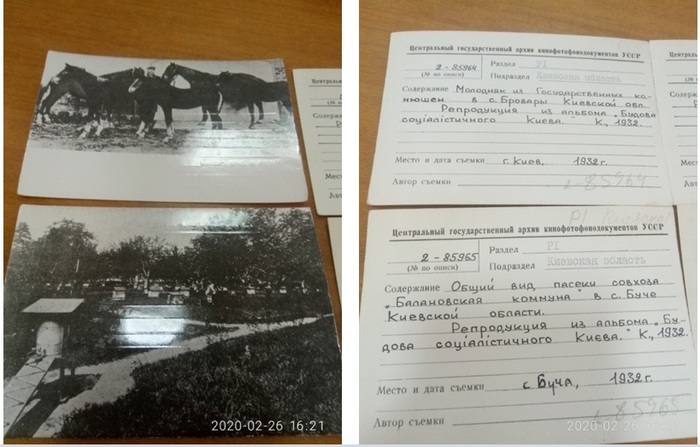 2020-02-26 16:21
Центральный государственный архив кинофотофонодокументов УССР
2-85964
(№ по описи)
Раздел PI
Подраздел Киевская область
Содержание Молодняк из Государственных ко-
нюшен в с. Бровары Киевской обл.
Репродукция из альбома "Будова
соціалістичного Києва." К., 1932.
Место и дата съемки г. Киев, 1932 г.
Автор съемки
2-85964
PI Киевская
Центральный государственный архив кинофотофонодокументов УССР
2-85965
(№ по описи)
Раздел PI
Подраздел Киевская область
Содержание Общий вид пасеки совхоза
"Балановская коммуна" в с. Буче
Киевской области.
Репродукция из альбома "Бу-
дова соціалістичного Києва." К., 1932.
Место и дата съемки с. Буча, 1932 г.
Автор съемки
2-85965
2020-02-26